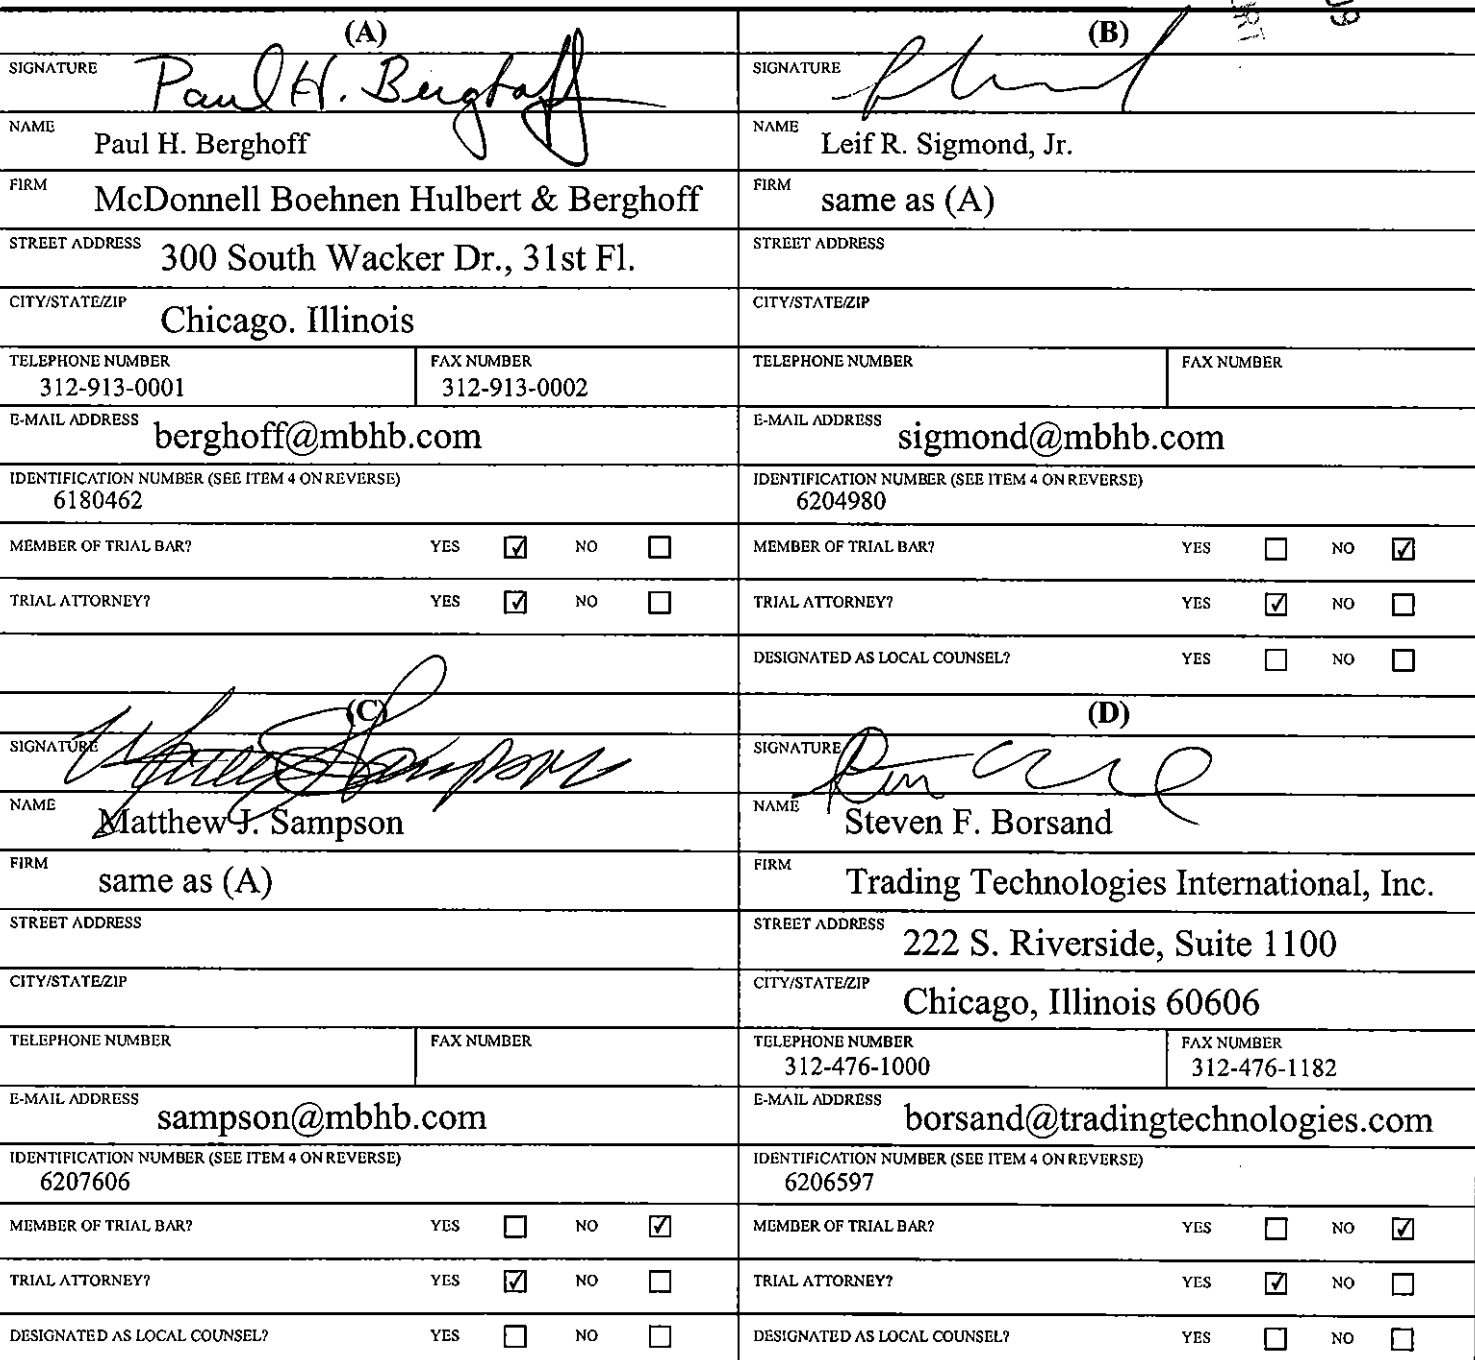 (A)
SIGNATURE Paul H. Berghoff
NAME Paul H. Berghoff
FIRM McDonnell Boehnen Hulbert & Berghoff
STREET ADDRESS 300 South Wacker Dr., 31st Fl.
CITY/STATE/ZIP Chicago. Illinois
TELEPHONE NUMBER 312-913-0001 FAX NUMBER 312-913-0002
E-MAIL ADDRESS berghoff@mbhb.com
IDENTIFICATION NUMBER (SEE ITEM 4 ON REVERSE)
6180462
MEMBER OF TRIAL BAR? YES ☑ NO ☐
TRIAL ATTORNEY? YES ☑ NO ☐
(B)
SIGNATURE
NAME Leif R. Sigmond, Jr.
FIRM same as (A)
STREET ADDRESS
CITY/STATE/ZIP
TELEPHONE NUMBER FAX NUMBER
E-MAIL ADDRESS sigmond@mbhb.com
IDENTIFICATION NUMBER (SEE ITEM 4 ON REVERSE)
6204980
MEMBER OF TRIAL BAR? YES ☐ NO ☑
TRIAL ATTORNEY? YES ☑ NO ☐
DESIGNATED AS LOCAL COUNSEL? YES ☐ NO ☐
(C)
SIGNATURE
NAME Matthew J. Sampson
FIRM same as (A)
STREET ADDRESS
CITY/STATE/ZIP
TELEPHONE NUMBER FAX NUMBER
E-MAIL ADDRESS sampson@mbhb.com
IDENTIFICATION NUMBER (SEE ITEM 4 ON REVERSE)
6207606
MEMBER OF TRIAL BAR? YES ☐ NO ☑
TRIAL ATTORNEY? YES ☑ NO ☐
DESIGNATED AS LOCAL COUNSEL? YES ☐ NO ☐
(D)
SIGNATURE
NAME Steven F. Borsand
FIRM Trading Technologies International, Inc.
STREET ADDRESS 222 S. Riverside, Suite 1100
CITY/STATE/ZIP Chicago, Illinois 60606
TELEPHONE NUMBER 312-476-1000 FAX NUMBER 312-476-1182
E-MAIL ADDRESS borsand@tradingtechnologies.com
IDENTIFICATION NUMBER (SEE ITEM 4 ON REVERSE)
6206597
MEMBER OF TRIAL BAR? YES ☐ NO ☑
TRIAL ATTORNEY? YES ☑ NO ☐
DESIGNATED AS LOCAL COUNSEL? YES ☐ NO ☐